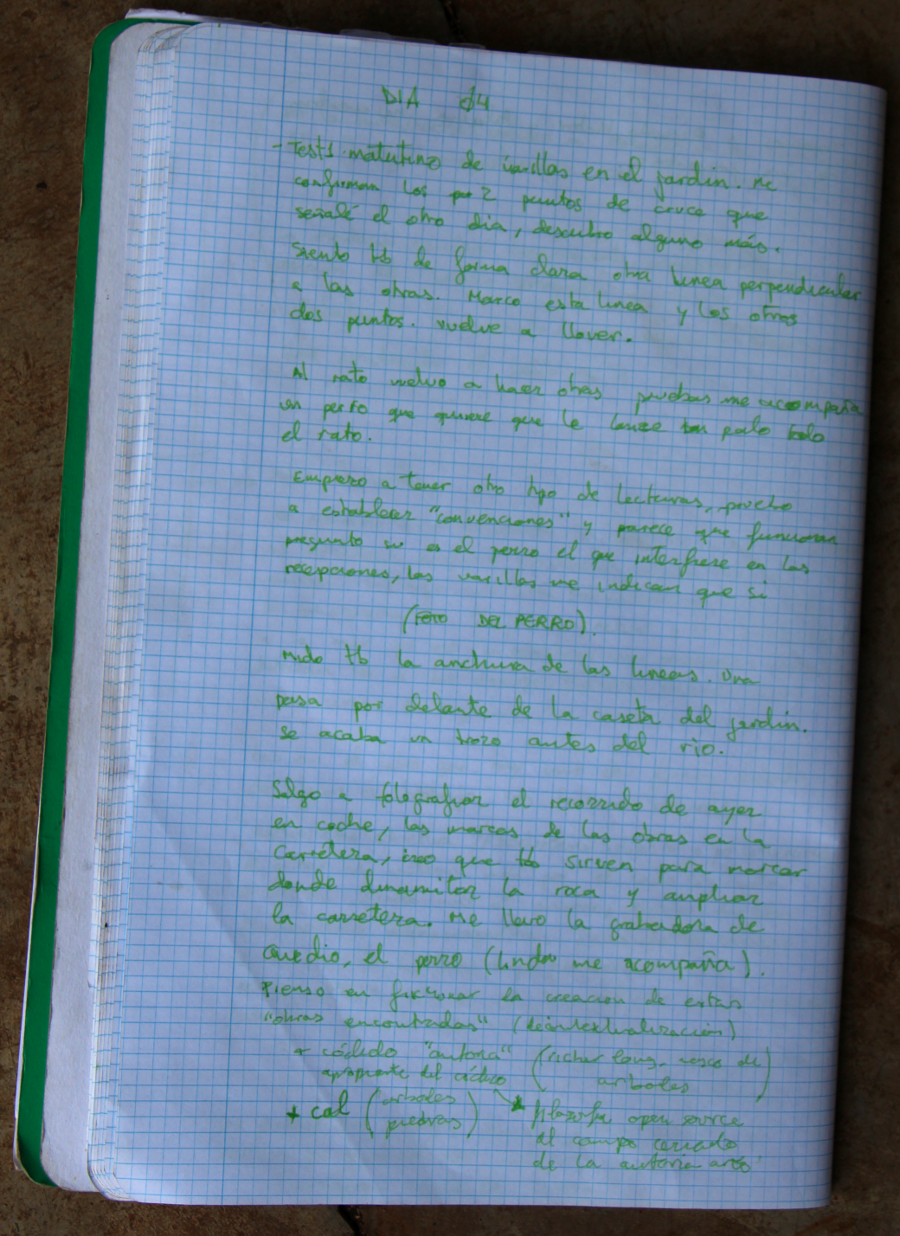 DIA 14
- Tests matutino de varillas en el jardin. Me
confirman los 2 puntos de cruce que
señalé el otro dia, descubro alguno más.
Siento tb de forma clara otra linea perpendicular
a las otras. Marco esta linea y los otros
dos puntos. Vuelve a llover.
Al rato vuelvo a hacer otras pruebas me acompaña
un perro que quiere que le lance un palo todo
el rato.
Empiezo a tener otro tipo de lecturas, pruebo
a establecer "convenciones" y parece que funcionan
pregunto si es el perro el que interfiere en las
recepciones, las varillas me indican que si
(FOTO DEL PERRO).
Mido tb la anchura de las lineas. Una
pasa por delante de la caseta del jardin.
se acaba un trozo antes del rio.
Salgo a fotografiar el recorrido de ayer
en coche, las marcas de las obras en la
carretera, creo que tb sirven para marcar
donde dinamitar la roca y ampliar
la carretera. Me llevo la grabadora de
audio, el perro (Linda me acompaña).
Pienso en ficcionar la creacion de estas
"obras encontradas" (descontextualización)
+ código "autoria" (richar long, de
apropiarte del código arboles)
+ cal (arboles piedras)
filosofia open source
al campo cerrado
de la autoria